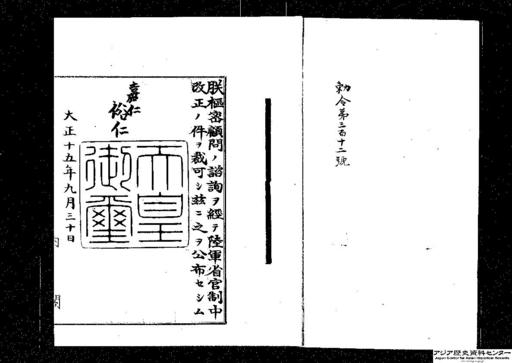 勅令第三百十二號
朕樞密顧問ノ諮詢ヲ經テ陸軍省官制中
改正ノ件ヲ裁可シ茲ニ之ヲ公布セシム
嘉仁
裕仁
天皇
御璽
大正十五年九月三十日
アジア歴史資料センター
Japan Center for Asian Historical Records